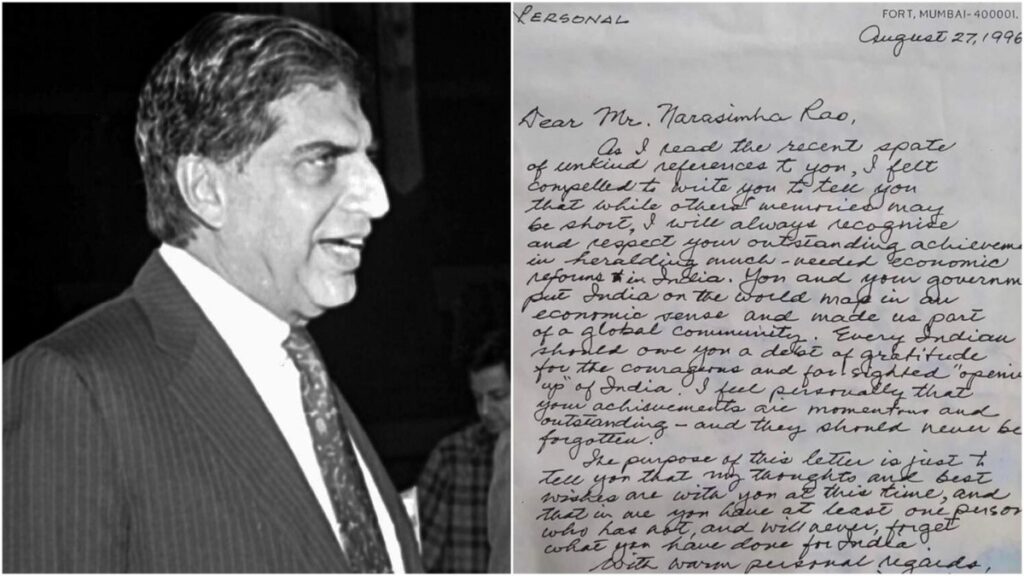 PERSONAL
FORT, MUMBAI-400001.
August 27, 1996
Dear Mr. Narasimha Rao,
As I read the recent spate
of unkind references to you, I felt
compelled to write you to tell you
that while others' memories may
be short, I will always recognise
and respect your outstanding achieveme
in heralding much-needed economic
reforms in India. You and your governm
put India on the world map in an
economic sense and made us part
of a global community. Every Indian
should owe you a debt of gratitude
for the courageous and far sighted "openin
up" of India. I feel personally that
your achievements are momentous and
outstanding – and they should never be
forgotten.
The purpose of this letter is just to
tell you that my thoughts and best
wishes are with you at this time, and
that in me you have at least one person
who has not, and will never, forget
what you have done for India.
With warm personal regards,